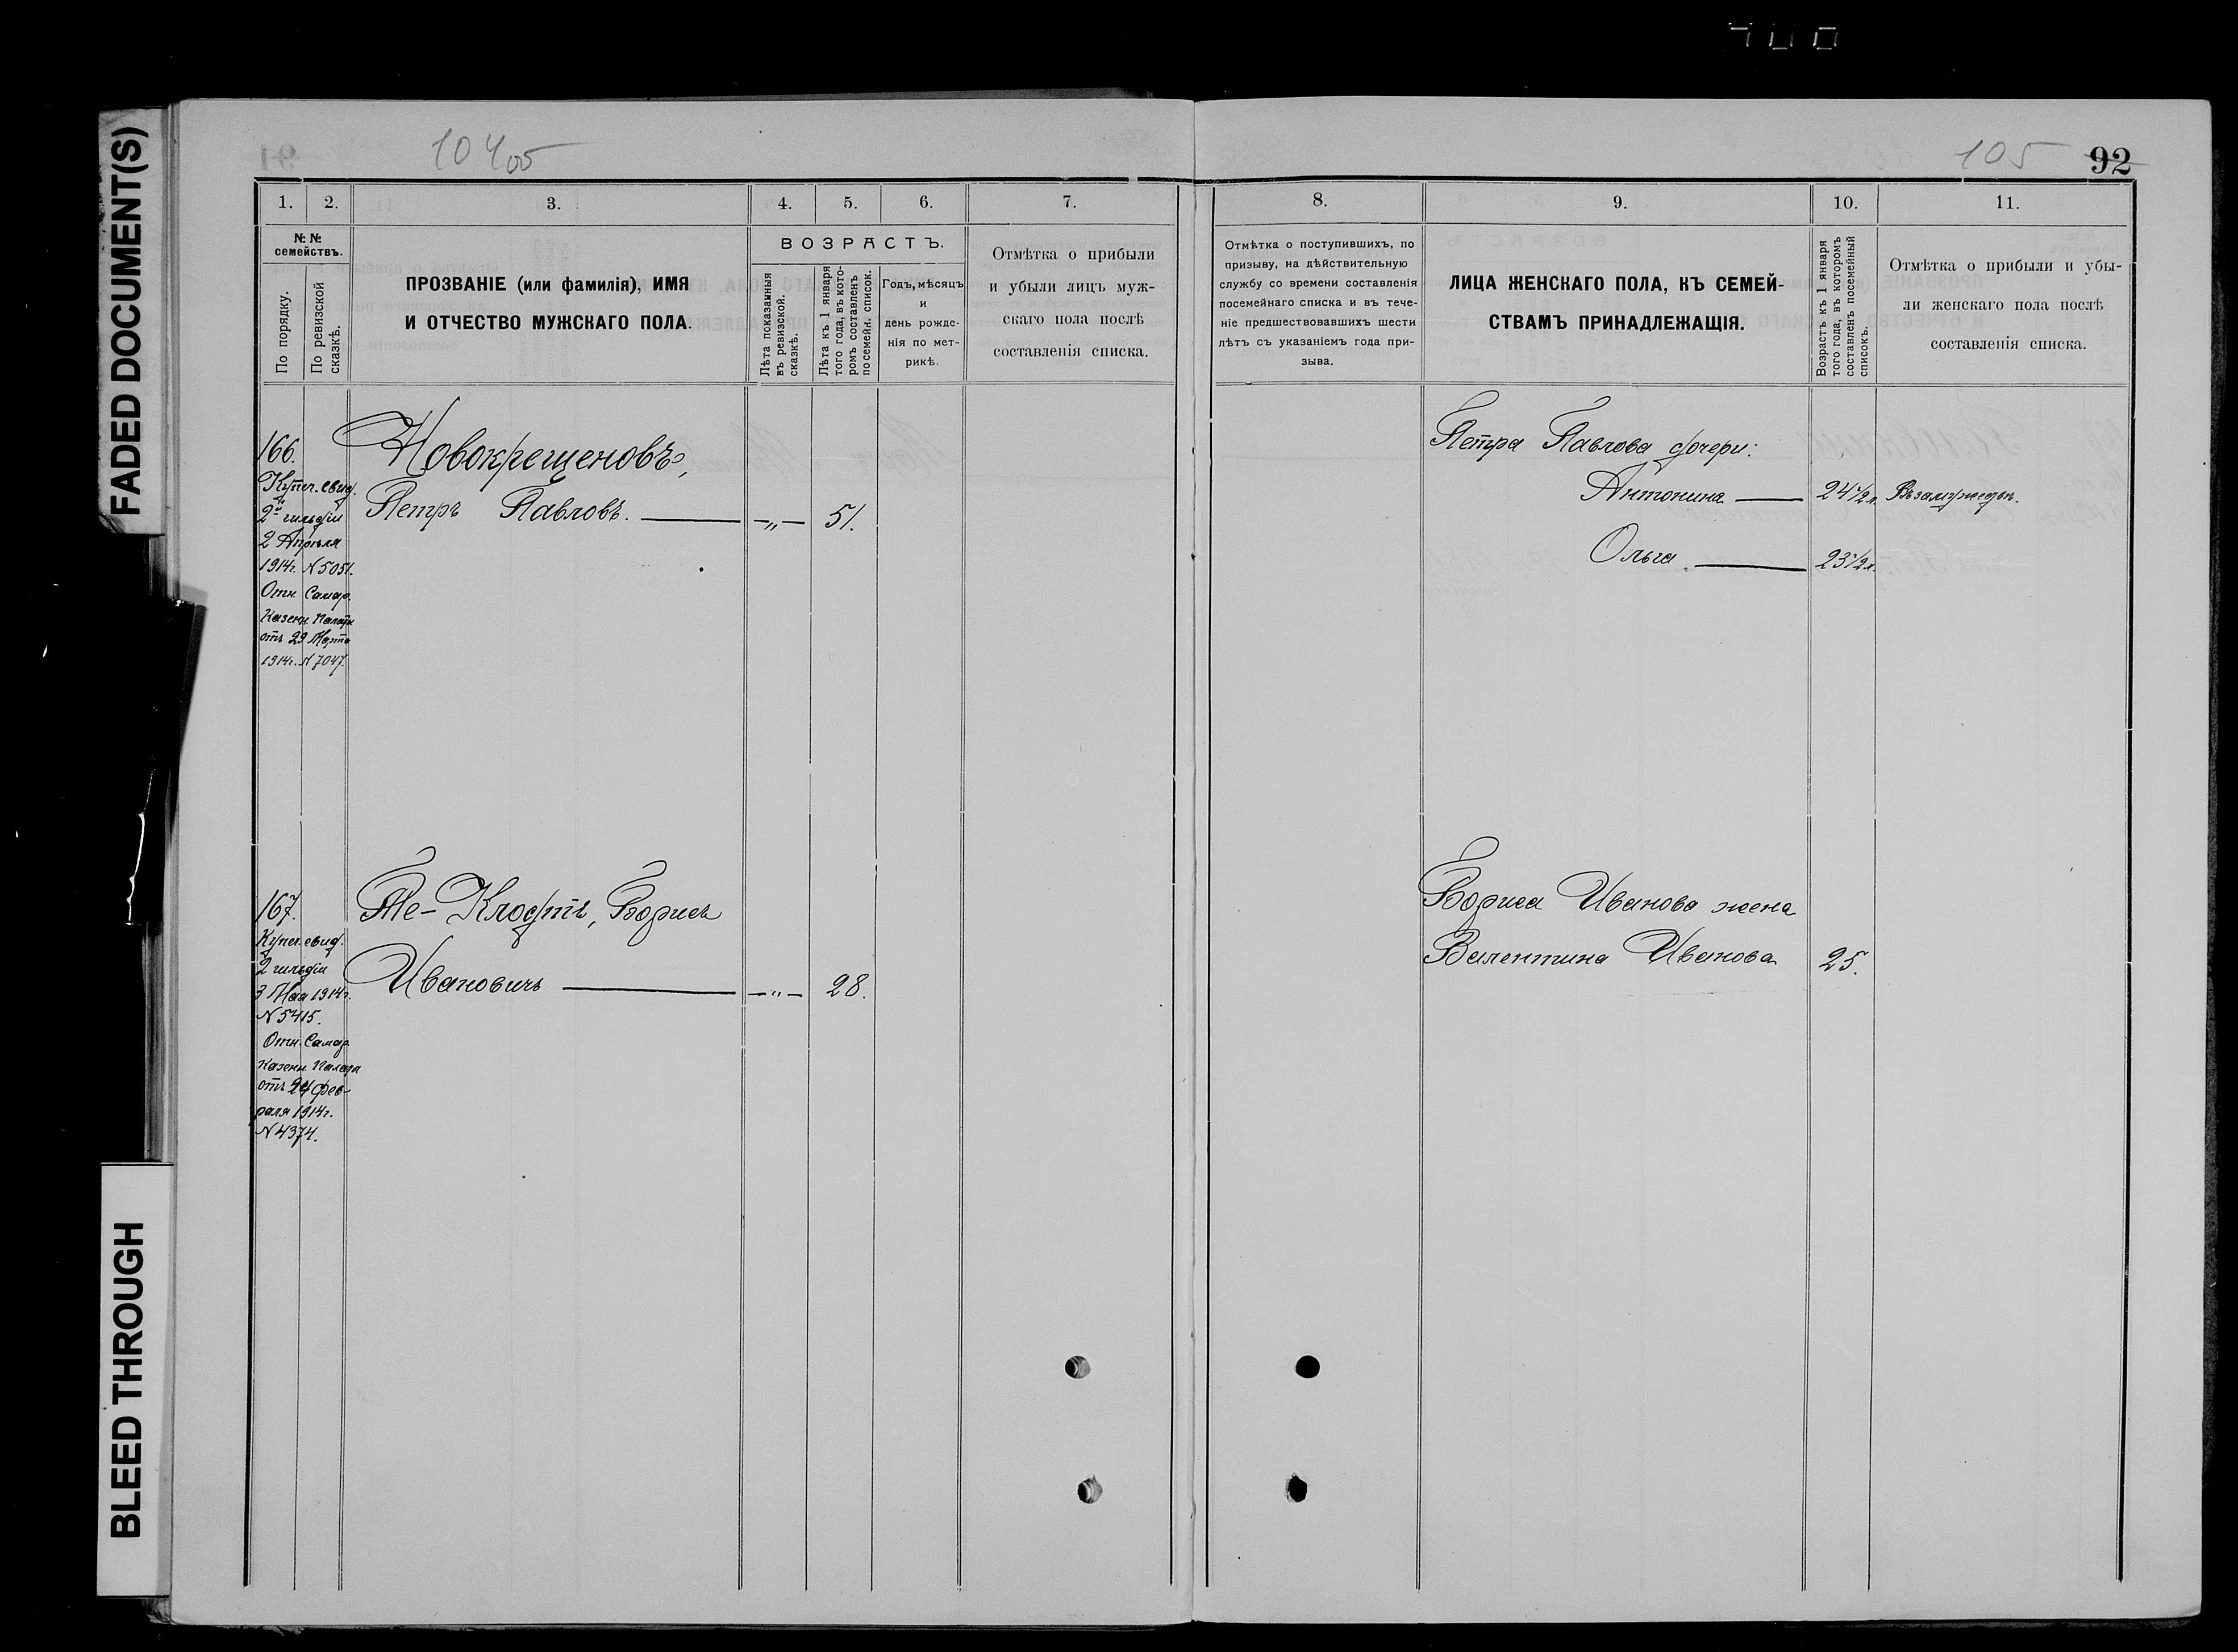 FADED DOCUMENT(S)
BLEED THROUGH
105
92
1.
2.
3.
4.
5.
6.
7.
№ №
семействъ.
По порядку.
По ревизской
сказкѣ.
ПРОЗВАНІЕ (или фамилія), ИМЯ
И ОТЧЕСТВО МУЖСКАГО ПОЛА.
ВОЗРАСТЪ.
Лѣта показанныя
въ ревизской.
сказкѣ.
Лѣта къ 1 января
того года, въ кото-
ромъ составленъ
по семейн. список.
Годъ, мѣсяцъ
и
день рожде-
нія по мет-
рикѣ.
Отмѣтка о прибыли
и убыли лицъ муж-
скаго пола послѣ
составленія списка.
166.
Купеч. свид.
2й гильдіи
2 Апрѣля
1914г. N 5051.
Отн. Самар.
Казен. Палаты
отъ 29 Марта
1914г. N 7047.
Новокрещеновъ,
Петръ Павловъ. — „ — 51.
167.
Купеч. свид.
2 гильдіи
3 Мая 1914г.
N 5415.
Отн. Самар.
Казен. Палаты
отъ 24 фев-
раля 1914г.
N 4374.
Борисъ
Ивановичъ — „ — 28.
8.
9.
10.
11.
Отмѣтка о поступившихъ, по
призыву, на дѣйствительную
службу со времени составленія
посемейнаго списка и въ тече-
ніе предшествовавшихъ шести
лѣтъ съ указаніемъ года при-
зыва.
ЛИЦА ЖЕНСКАГО ПОЛА, КЪ СЕМЕЙ-
СТВАМЪ ПРИНАДЛЕЖАЩІЯ.
Возрастъ къ 1 января
того года, въ которомъ
составленъ посемейный
списокъ.
Отмѣтка о прибыли и убы-
ли женскаго пола послѣ
составленія списка.
Петра Павлова дочери:
Антонина — 24 1/2 л. Въ замужедѣ.
Ольга — 23 1/2 л.
Бориса Иванова жена
Валентина Иванова 25.